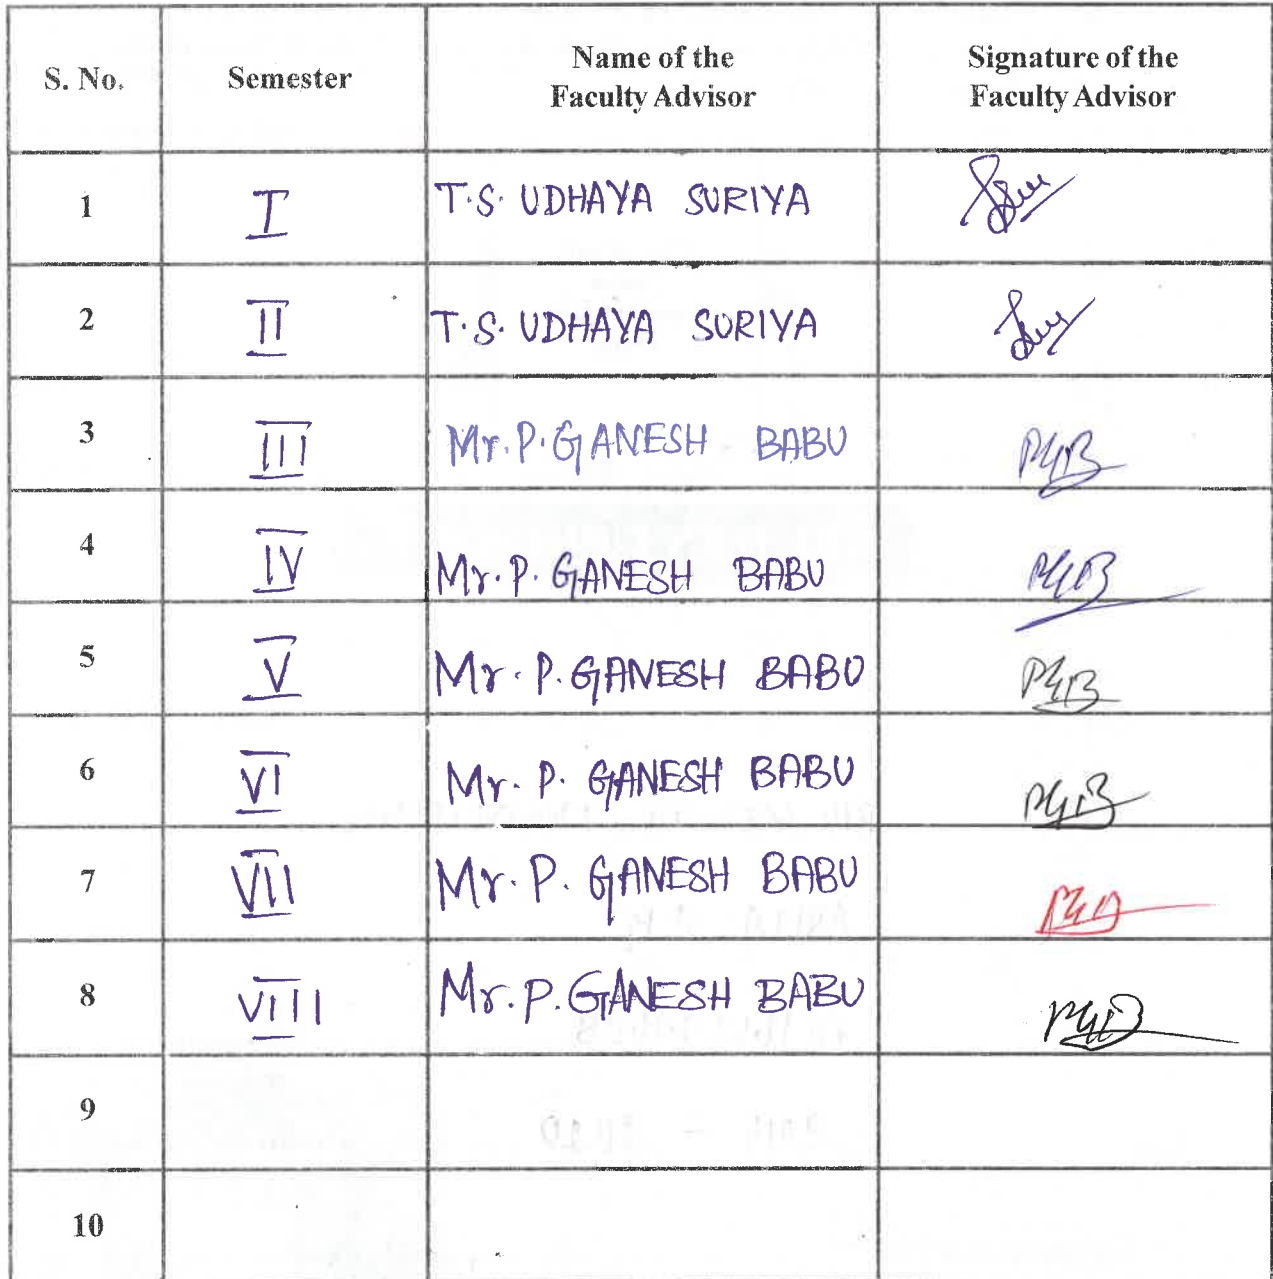 S. No. Semester Name of the Faculty Advisor Signature of the Faculty Advisor
1 I T.S. UDHAYA SURIYA
2 II T.S. UDHAYA SURIYA
3 III Mr. P. GANESH BABU PGB
4 IV Mr. P. GANESH BABU PGB
5 V Mr. P. GANESH BABU PGB
6 VI Mr. P. GANESH BABU PGB
7 VII Mr. P. GANESH BABU PGB
8 VIII Mr. P. GANESH BABU PGB
9
10